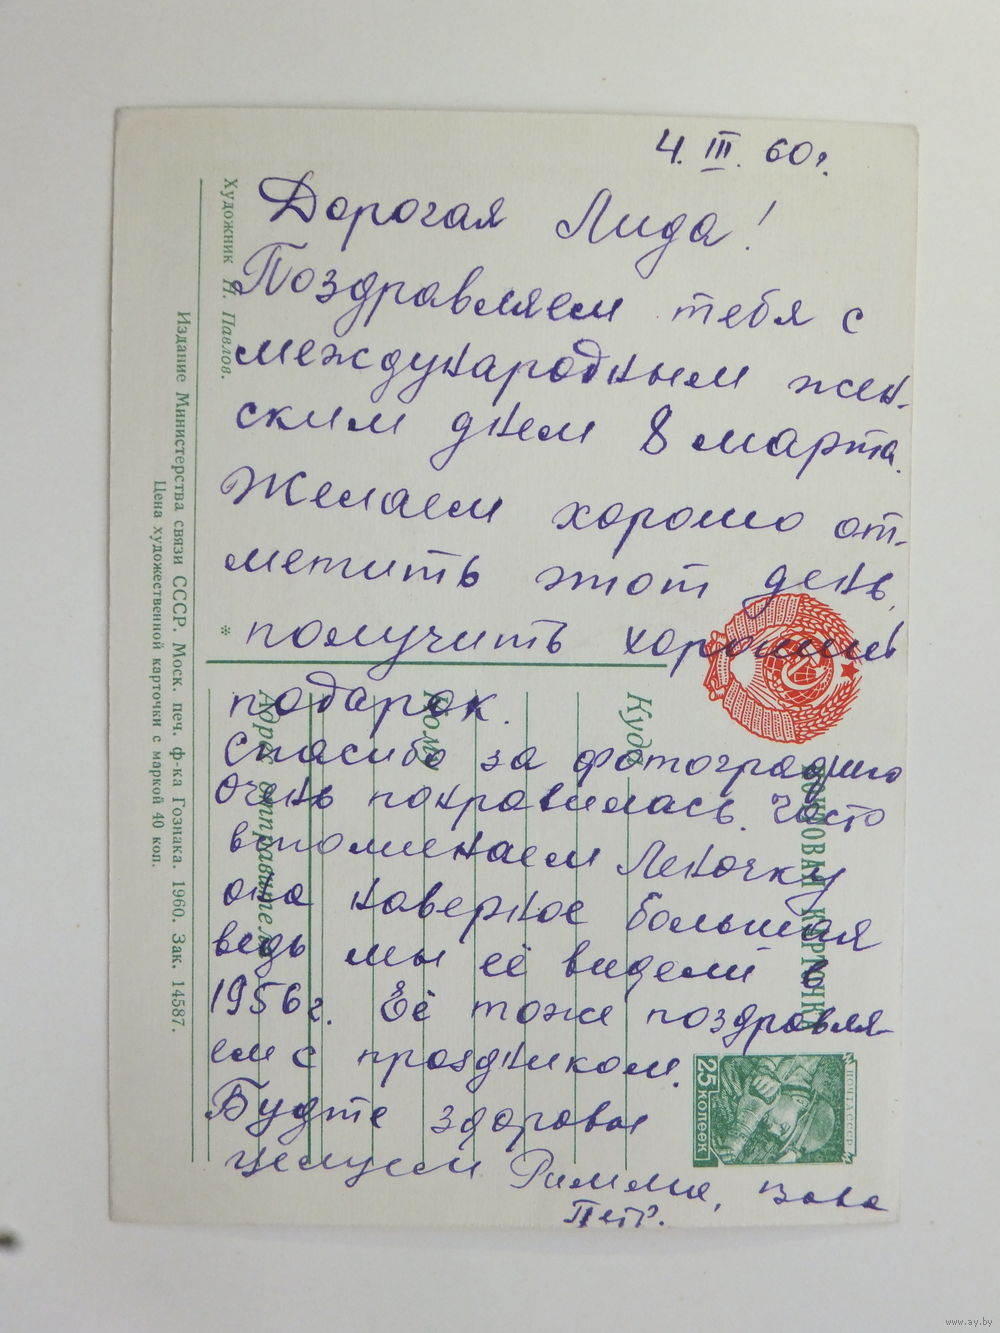 4. III. 60г.
Дорогая Лида!
Поздравляем тебя с
международным жен-
ским днем 8 марта.
Желаем хорошо от-
метить этот день,
получить хороший
подарок.
Спасибо за фотографию
очень понравилась. Часто
вспоминаем Леночку
она наверное большая
ведь мы её видели в
1956г. Её тоже поздравля-
ем с праздником.
Будте здоровы
целуем Римма, Вова
Петр.
Художник Н. Павлов.
Издание Министерства связи СССР. Моск. печ. ф-ка Гознака. 1960. Зак. 14587.
Цена художественной карточки с маркой 40 коп.
*
ПОЧТОВАЯ КАРТОЧКА
Куда
Кому
Адрес отправителя
ПОЧТА СССР
25 КОПЕЕК
www.ay.by